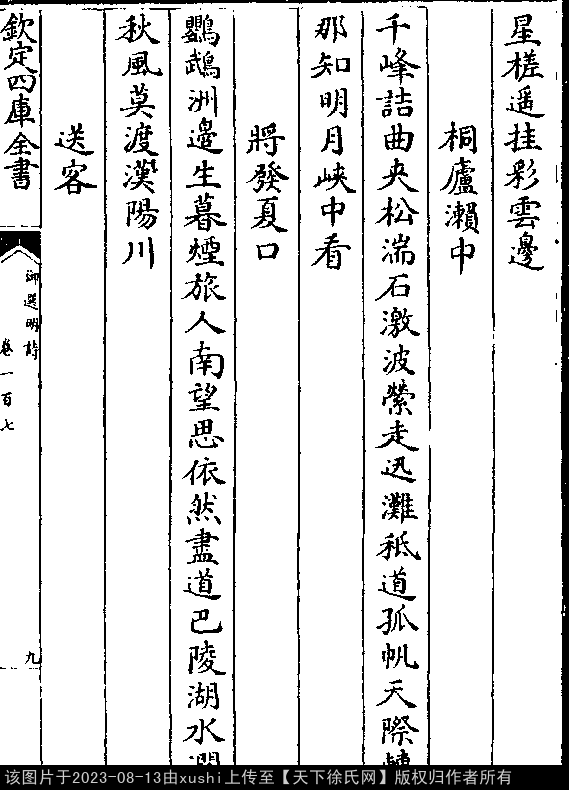 星槎遥挂彩雲邊
桐廬瀨中
千峰詰曲夾松湍石激波縈走迅灘秪道孤帆天際轉
那知明月峽中看
將發夏口
鸚鵡洲邊生暮煙旅人南望思依然盡道巴陵湖水濶
秋風莫渡漢陽川
送客
欽定四庫全書
御選明詩
卷一百七
九
该图片于2023-08-13由xushi上传至【天下徐氏网】版权归作者所有